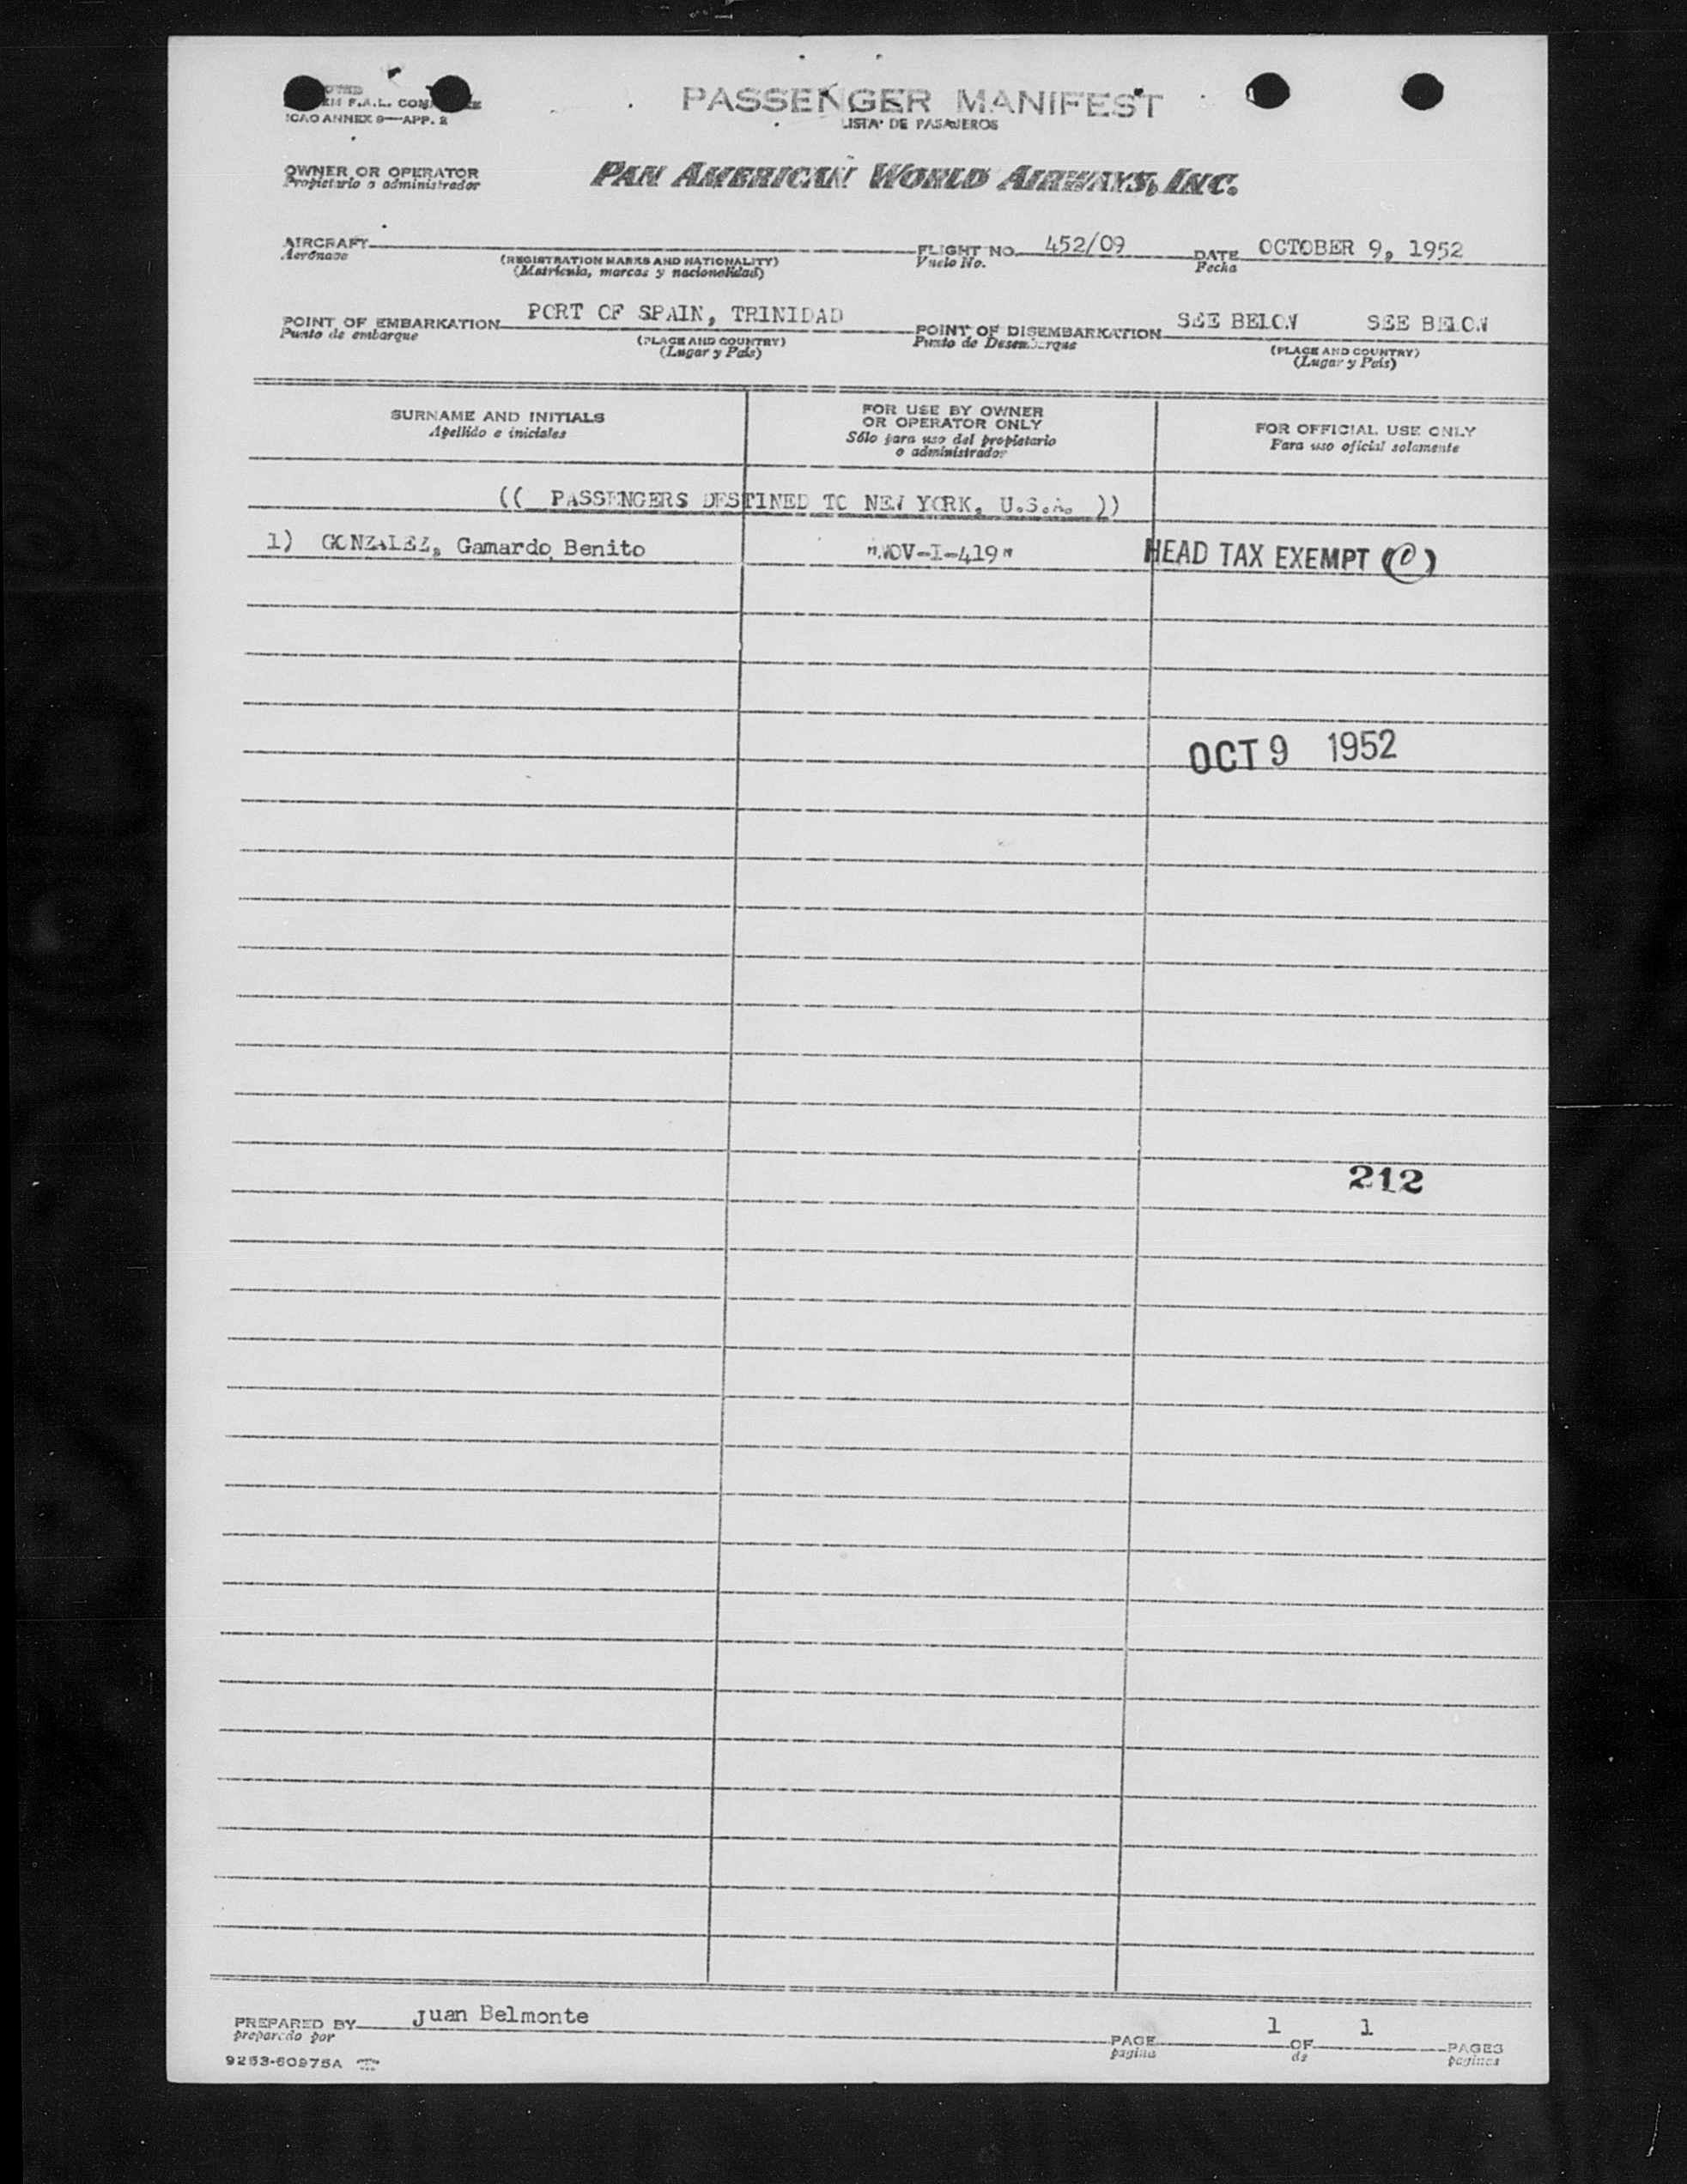 F.A.L.
ICAO ANNEX 9—APP. 2
PASSENGER MANIFEST
LISTA DE PASAJEROS
OWNER OR OPERATOR
Propietario o administrador
PAN AMERICAN WORLD AIRWAYS, INC.
AIRCRAFT
Aeronave
(REGISTRATION MARKS AND NATIONALITY)
(Matrícula, marcas y nacionalidad)
FLIGHT NO. 452/09
Vuelo No.
DATE OCTOBER 9, 1952
Fecha
POINT OF EMBARKATION PORT OF SPAIN, TRINIDAD
Punto de embarque
(PLACE AND COUNTRY)
(Lugar y País)
POINT OF DISEMBARKATION SEE BELOW SEE BELOW
Punto de Desembarque
(PLACE AND COUNTRY)
(Lugar y País)
SURNAME AND INITIALS
Apellido e iniciales
FOR USE BY OWNER
OR OPERATOR ONLY
Sólo para uso del propietario
o administrador
FOR OFFICIAL USE ONLY
Para uso oficial solamente
(( PASSENGERS DESTINED TO NEW YORK, U.S.A. ))
1) GONZALEZ, Gamardo Benito
HEAD TAX EXEMPT (C)
OCT 9 1952
212
PREPARED BY Juan Belmonte
preparado por
PAGE 1 OF 1 PAGES
página de páginas
9263-60975A